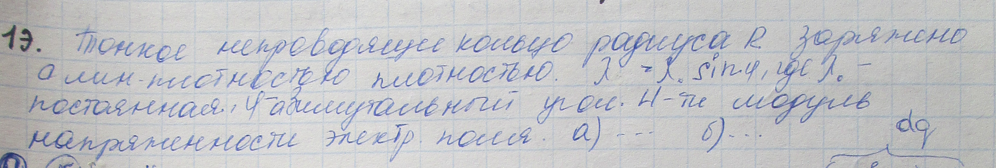 1Э. Тонкое непроводящие кольцо радиуса R заряжено
с лин-плотностью плотностью. λ = λ₀ sin φ, где λ₀ -
постоянная, φ-азимутальный угол. Н-ти модуль
напряженности электр. поля. а) --- б) ---
dq